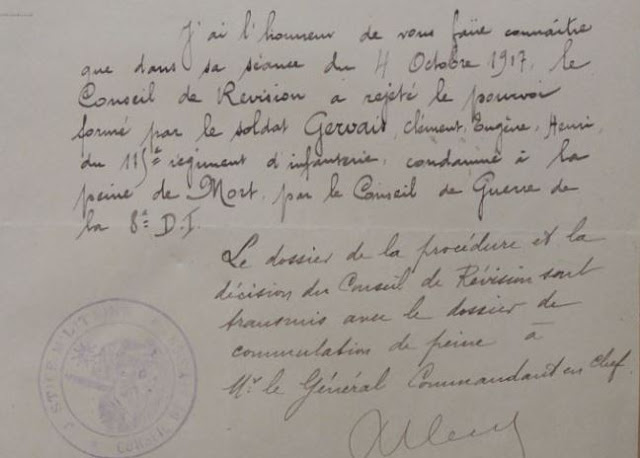 J'ai l'honneur de vous faire connaître
que dans sa séance du 4 Octobre 1917, le
Conseil de Revision a rejeté le pourvoi
formé par le soldat Gervais, Clément, Eugène, Henri,
du 115e régiment d'infanterie, condamné à la
peine de Mort, par le Conseil de Guerre de
la 8e D.I.
Le dossier de la procédure et la
décision du Conseil de Révision sont
transmis avec le dossier de
commutation de peine à
Mr le Général Commandant en Chef
JUSTICE MILITAIRE
CONSEIL